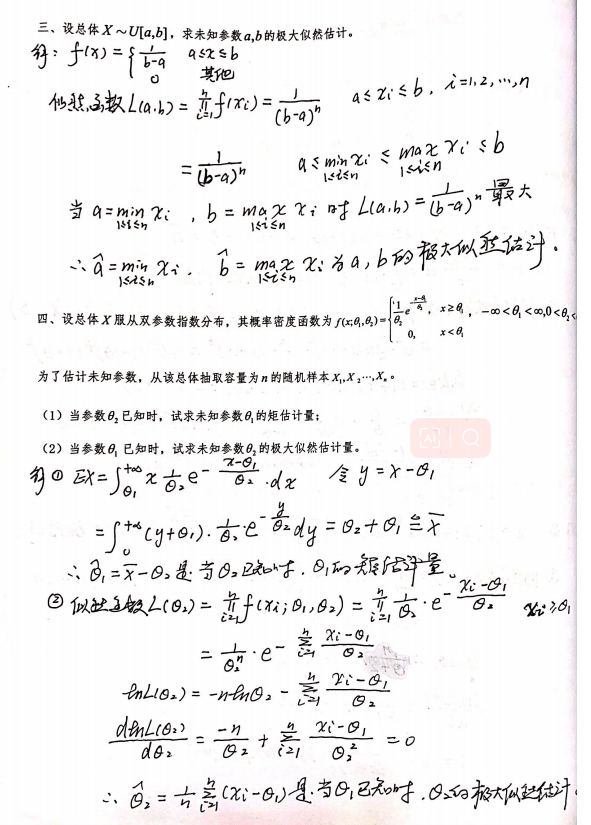 三、设总体 X～U[a,b]，求未知参数a,b的极大似然估计。
解：f(x) = { 1/(b-a) a≤x≤b
0 其他
似然函数 L(a,b) = ∏_{i=1}^{n} f(xi) = 1/(b-a)^n a≤xi≤b，i=1,2,…,n
= 1/(b-a)^n a≤ min_{1≤i≤n} xi ≤ max_{1≤i≤n} xi ≤b
当 a=min_{1≤i≤n} xi ，b = max_{1≤i≤n} xi 时 L(a,b) = 1/(b-a)^n 最大
∴ â=min_{1≤i≤n} xi . b̂ = max_{1≤i≤n} xi 为 a,b的极大似然估计。
四、设总体 X 服从双参数指数分布，其概率密度函数为 f(x;θ₁,θ₂)={ 1/θ₂ e^{-(x-θ₁)/θ₂}， x≥θ₁ ，-∞<θ₁<∞,0<θ₂<
0, x<θ₁
为了估计未知参数，从该总体抽取容量为 n 的随机样本X₁,X₂…,Xₙ。
（1）当参数θ₂已知时，试求未知参数θ₁的矩估计量；
（2）当参数θ₁已知时，试求未知参数θ₂的极大似然估计量。
解① EX=∫_{θ₁}^{+∞} x 1/θ₂ e^{-(x-θ₁)/θ₂} ·dx 令 y=x-θ₁
=∫_{0}^{+∞} (y+θ₁)· 1/θ₂ e^{-y/θ₂} dy = θ₂+θ₁ ≙ x̄
∴ θ̂₁=x̄-θ₂是当θ₂已知时，θ₁的矩估计量。
② 似然函数L(θ₂) = ∏_{i=1}^{n} f(xi;θ₁,θ₂) = ∏_{i=1}^{n} 1/θ₂ · e^{-(xi-θ₁)/θ₂} xi≥θ₁
= 1/θ₂^n · e^{-∑_{i=1}^{n} (xi-θ₁)/θ₂}
lnL(θ₂) = -nlnθ₂ - ∑_{i=1}^{n} (xi-θ₁)/θ₂
dlnL(θ₂)/dθ₂ = -n/θ₂ + ∑_{i=1}^{n} (xi-θ₁)/θ₂² = 0
∴ θ̂₂ = 1/n ∑_{i=1}^{n} (xi-θ₁) 是当θ₁已知时，θ₂的极大似然估计